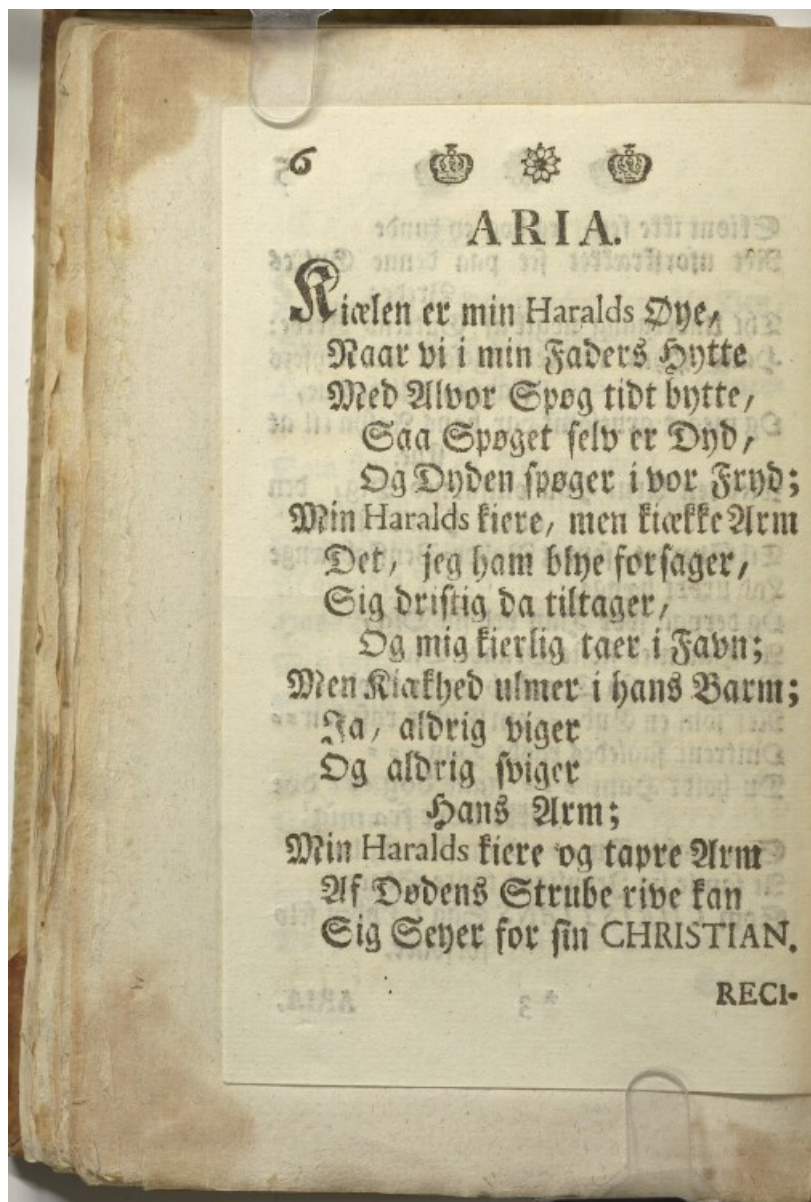 6
ARIA.
Kiælen er min Haralds Øye,
Naar vi i min Faders Hytte
Med Alvor Spøg tidt bytte,
Saa Spøget selv er Dyd,
Og Dyden spøger i vor Fryd;
Min Haralds kiere, men kiække Arm
Det, jeg ham blye forsager,
Sig dristig da tiltager,
Og mig kierlig taer i Favn;
Men Kiækhed ulmer i hans Barm;
Ja, aldrig viger
Og aldrig sviger
Hans Arm;
Min Haralds kiere og tapre Arm
Af Dødens Strube rive kan
Sig Seyer for sin CHRISTIAN.
RECI-